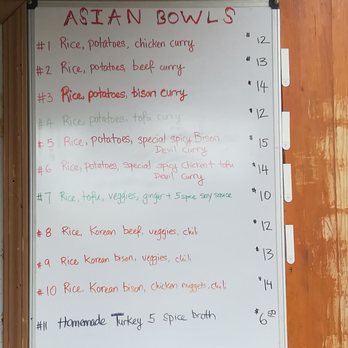 ASIAN BOWLS
#1 Rice, potatoes, chicken curry $12
#2 Rice, potatoes, beef curry $13
#3 Rice, potatoes, bison curry $14
#4 Rice, potatoes, tofu curry $12
#5 Rice, potatoes, special spicy Bison $15
Devil curry
#6 Rice, potatoes, special spicy Chicken + tofu $14
Devil curry
#7 Rice, tofu, veggies, ginger + 5 spice soy sauce $10
#8 Rice, Korean beef, veggies, chili $12
#9 Rice Korean bison, veggies, chili $13
#10 Rice, Korean bison, chicken nuggets, chili $14
#11 Homemade Turkey 5 spice broth $6.50